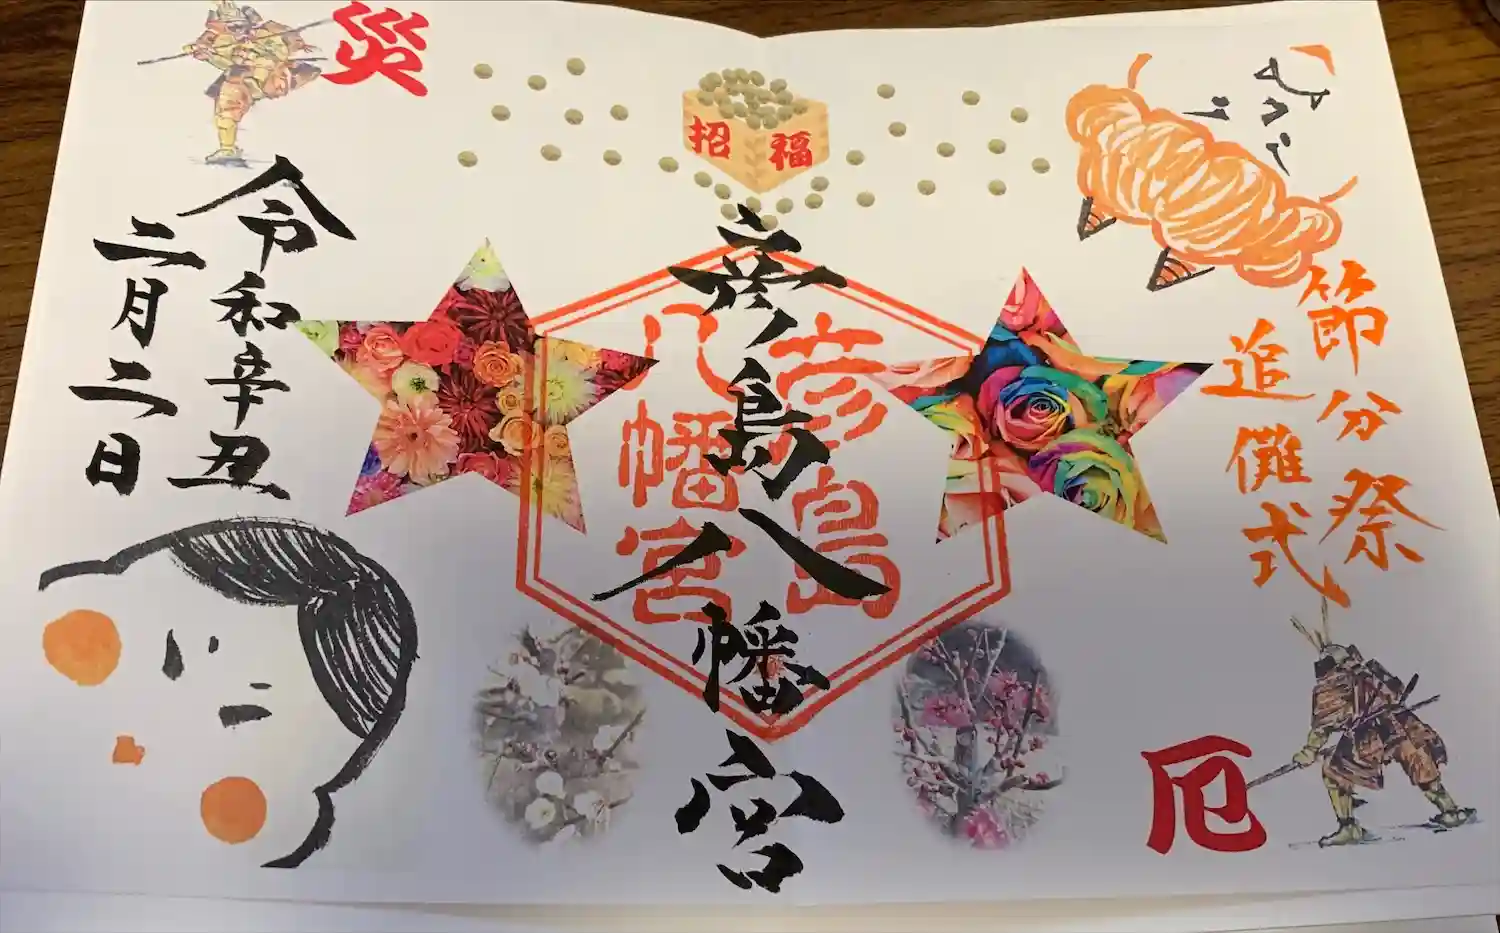 節分祭
追儺式
厄
招福
彦島八幡宮
彦島
八幡宮
災
令和辛丑
二月二日